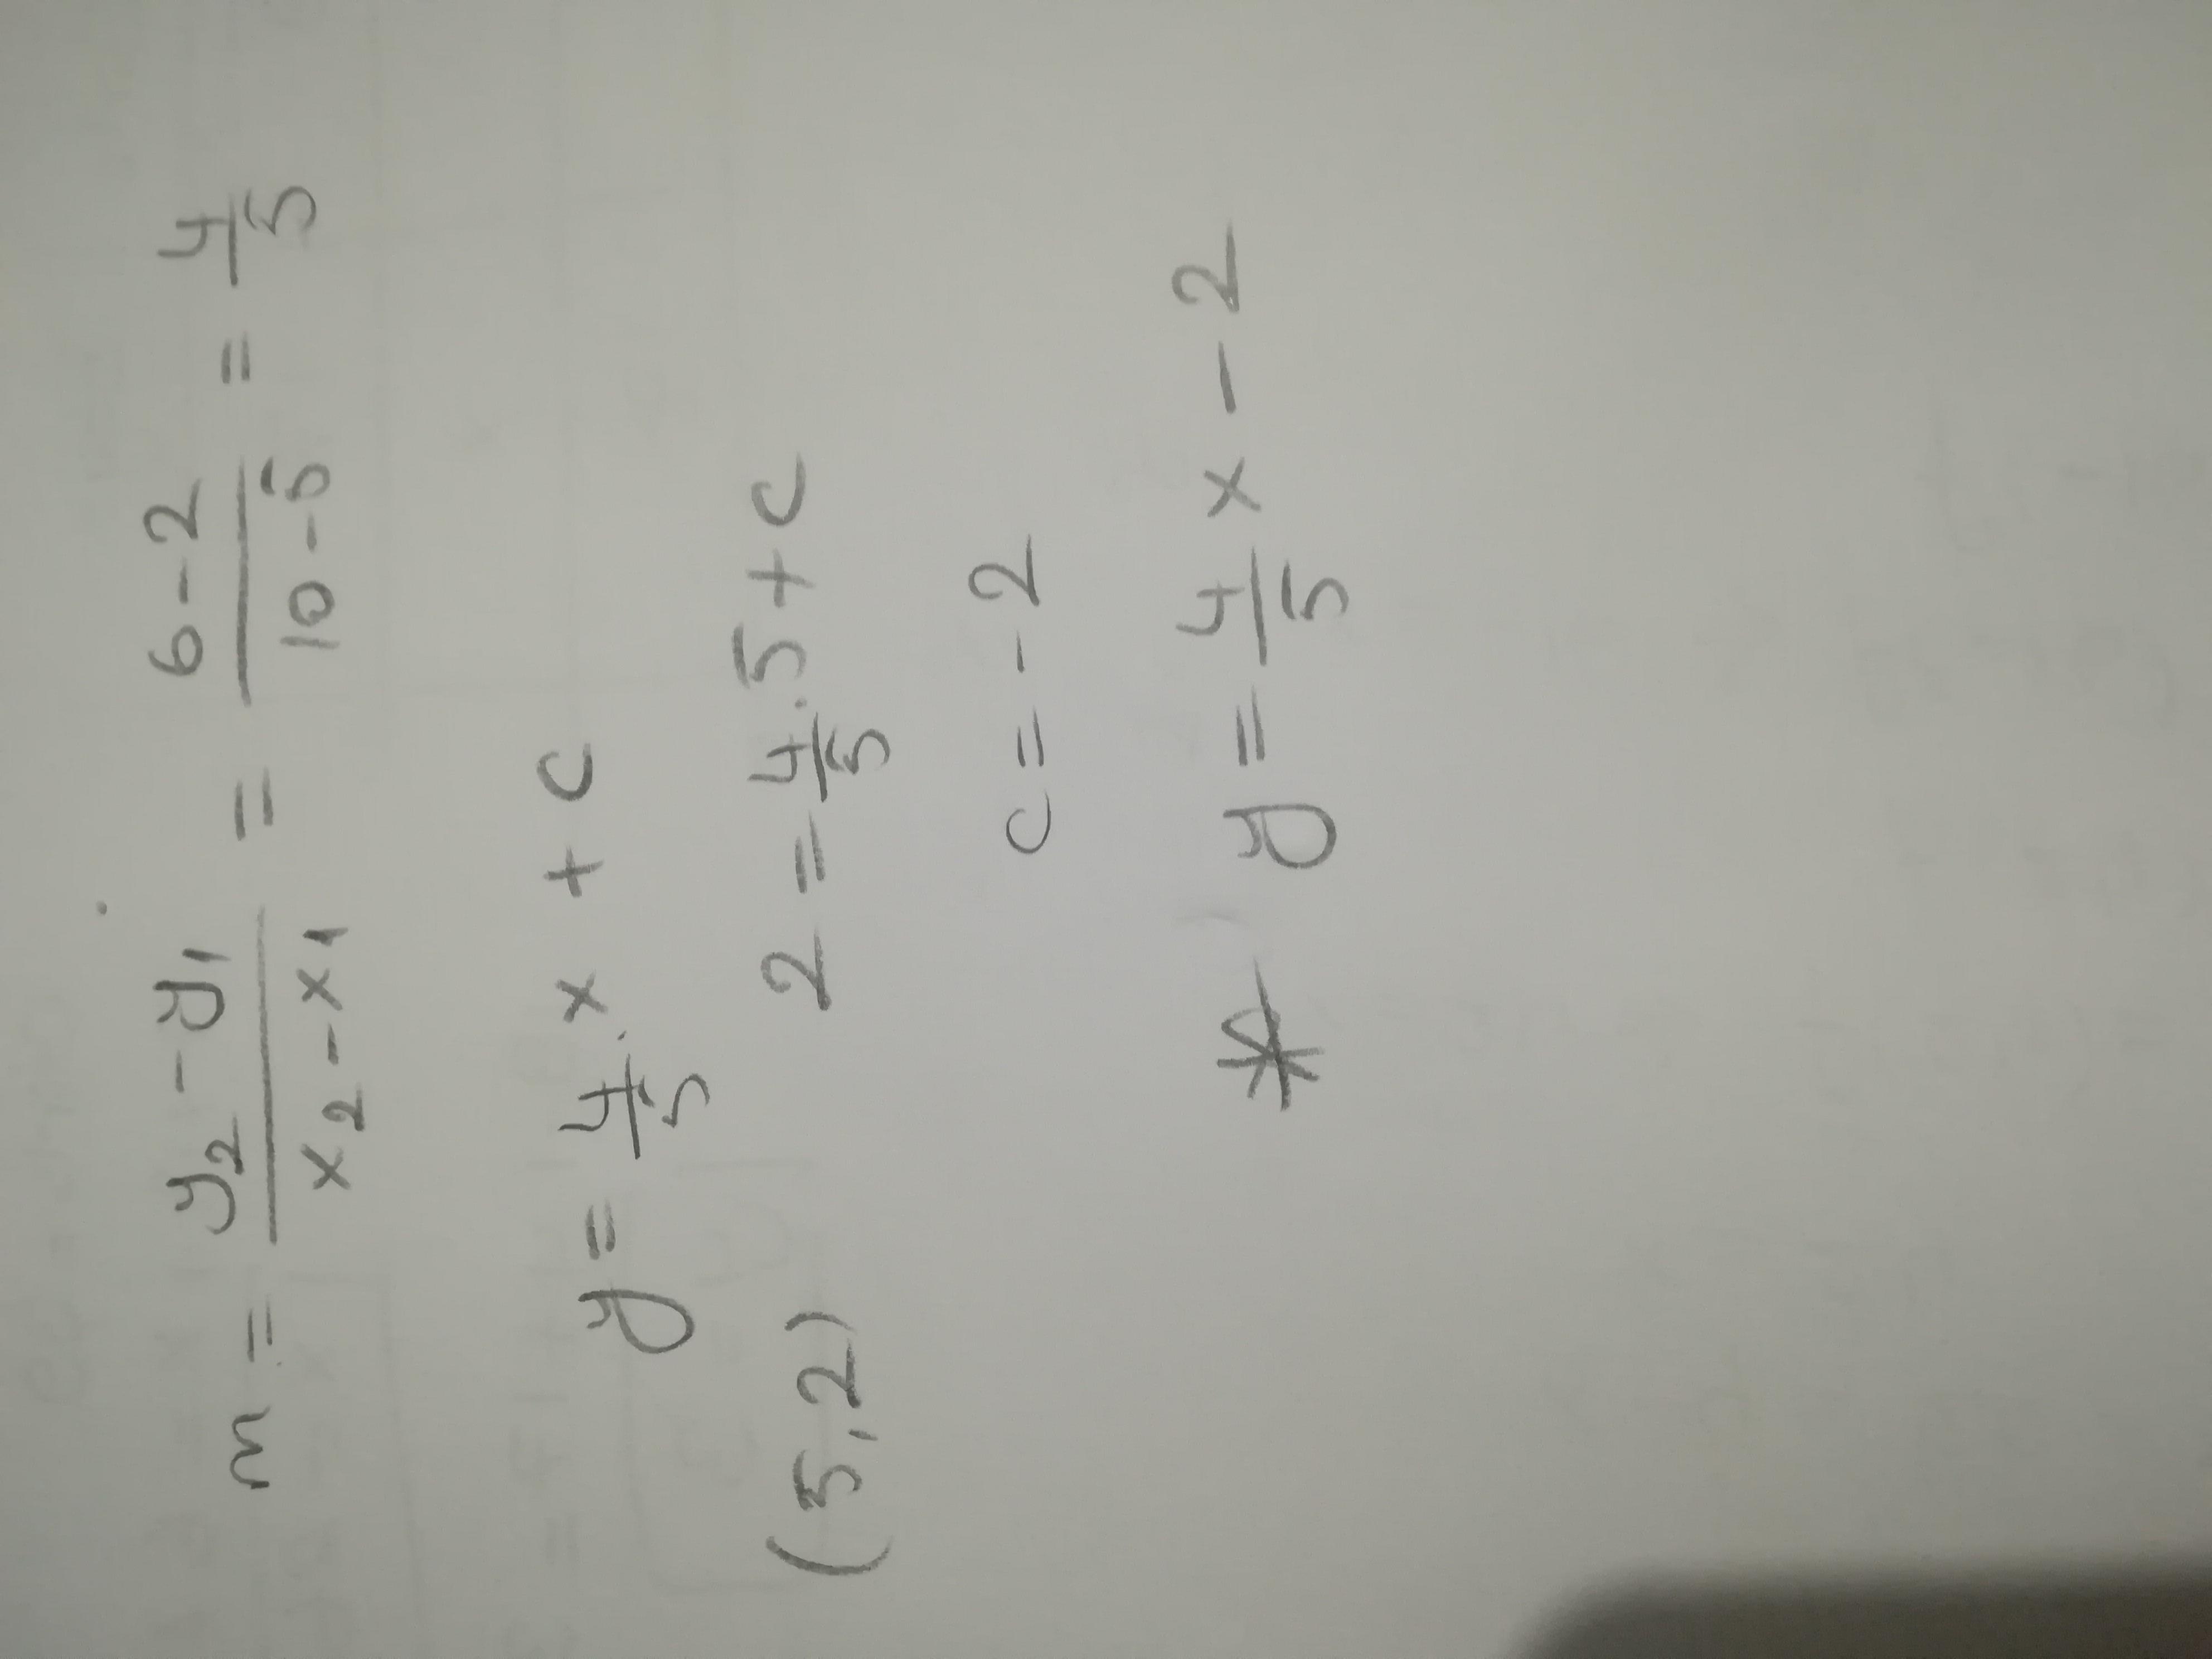 m = y₂ - y₁ / x₂ - x₁ = 6 - 2 / 10 - 5 = 4/5
y = 4/5 . x + c
(5,2) 2 = 4/5 . 5 + c
c = - 2
* y = 4/5 x - 2